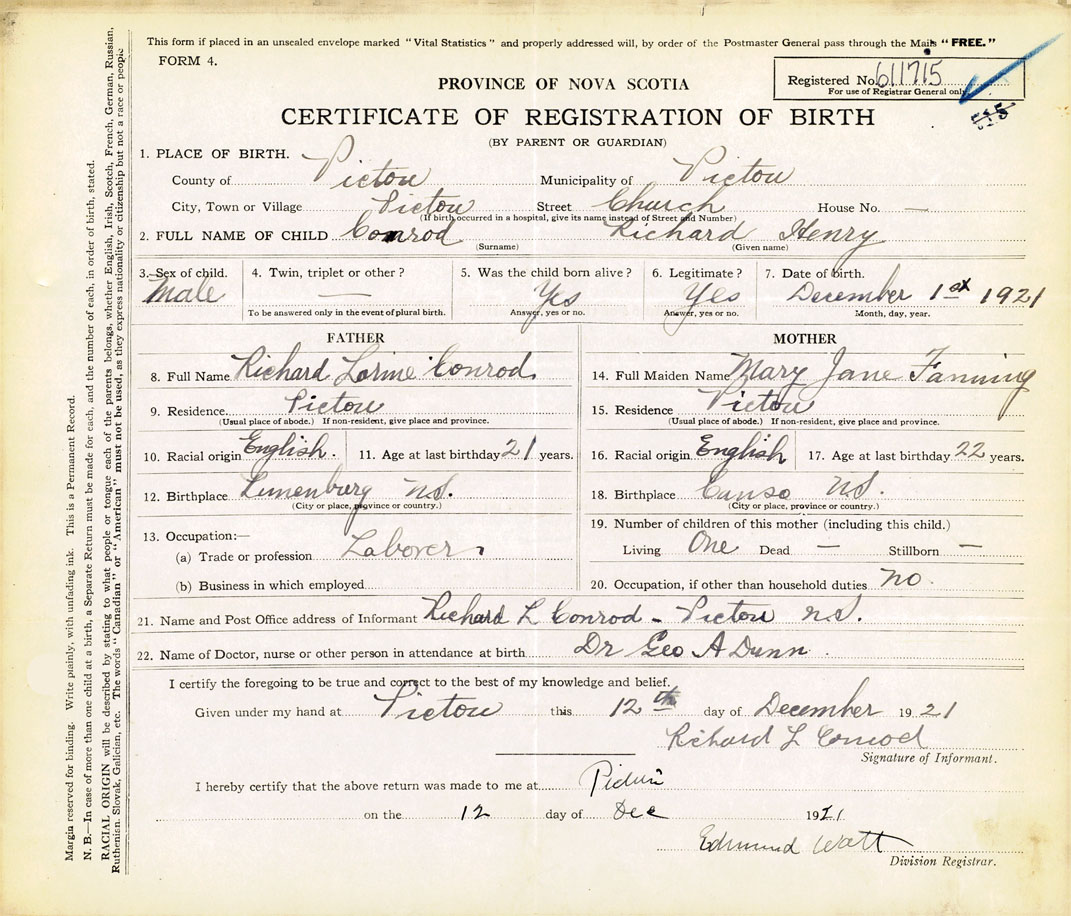 This form if placed in an unsealed envelope marked "Vital Statistics" and properly addressed will, by order of the Postmaster General pass through the Mails "FREE."
FORM 4.
Registered No. 611715
For use of Registrar General only
PROVINCE OF NOVA SCOTIA
CERTIFICATE OF REGISTRATION OF BIRTH
(BY PARENT OR GUARDIAN)
1. PLACE OF BIRTH.
County of Pictou Municipality of Pictou
City, Town or Village Pictou Street Church House No. —
(If birth occurred in a hospital, give its name instead of Street and Number)
2. FULL NAME OF CHILD Conrod Richard Henry
(Surname) (Given name)
3. Sex of child. 4. Twin, triplet or other? 5. Was the child born alive? 6. Legitimate? 7. Date of birth.
Male — Yes Yes December 1st 1921
To be answered only in the event of plural birth. Answer, yes or no. Answer, yes or no. Month, day, year.
FATHER
8. Full Name Richard Lorine Conrod
9. Residence. Pictou
(Usual place of abode.) If non-resident, give place and province.
10. Racial origin English. 11. Age at last birthday 21 years.
12. Birthplace Lunenburg N.S.
(City or place, province or country.)
13. Occupation:—
(a) Trade or profession Laborer
(b) Business in which employed
MOTHER
14. Full Maiden Name Mary Jane Fanning
15. Residence Pictou
(Usual place of abode.) If non-resident, give place and province.
16. Racial origin English 17. Age at last birthday 22 years.
18. Birthplace Canso N.S.
(City or place, province or country.)
19. Number of children of this mother (including this child.)
Living One Dead — Stillborn —
20. Occupation, if other than household duties no.
21. Name and Post Office address of Informant Richard L Conrod - Pictou N.S.
22. Name of Doctor, nurse or other person in attendance at birth Dr Geo A Dunn.
I certify the foregoing to be true and correct to the best of my knowledge and belief.
Given under my hand at Pictou this 12th day of December 1921
Richard L Conrod
Signature of Informant.
I hereby certify that the above return was made to me at Pictou
on the 12 day of Dec 1921.
Edmund Watt
Division Registrar.
Margin reserved for binding. Write plainly, with unfading ink. This is a Permanent Record.
N. B.—In case of more than one child at a birth, a Separate Return must be made for each, and the number of each, in order of birth, stated.
RACIAL ORIGIN will be described by stating to what people or tongue each of the parents belongs, whether English, Irish, Scotch, French, German, Russian,
Ruthenian, Slovak, Galician, etc. The words "Canadian" or "American" must not be used, as they express nationality or citizenship but not a race or people